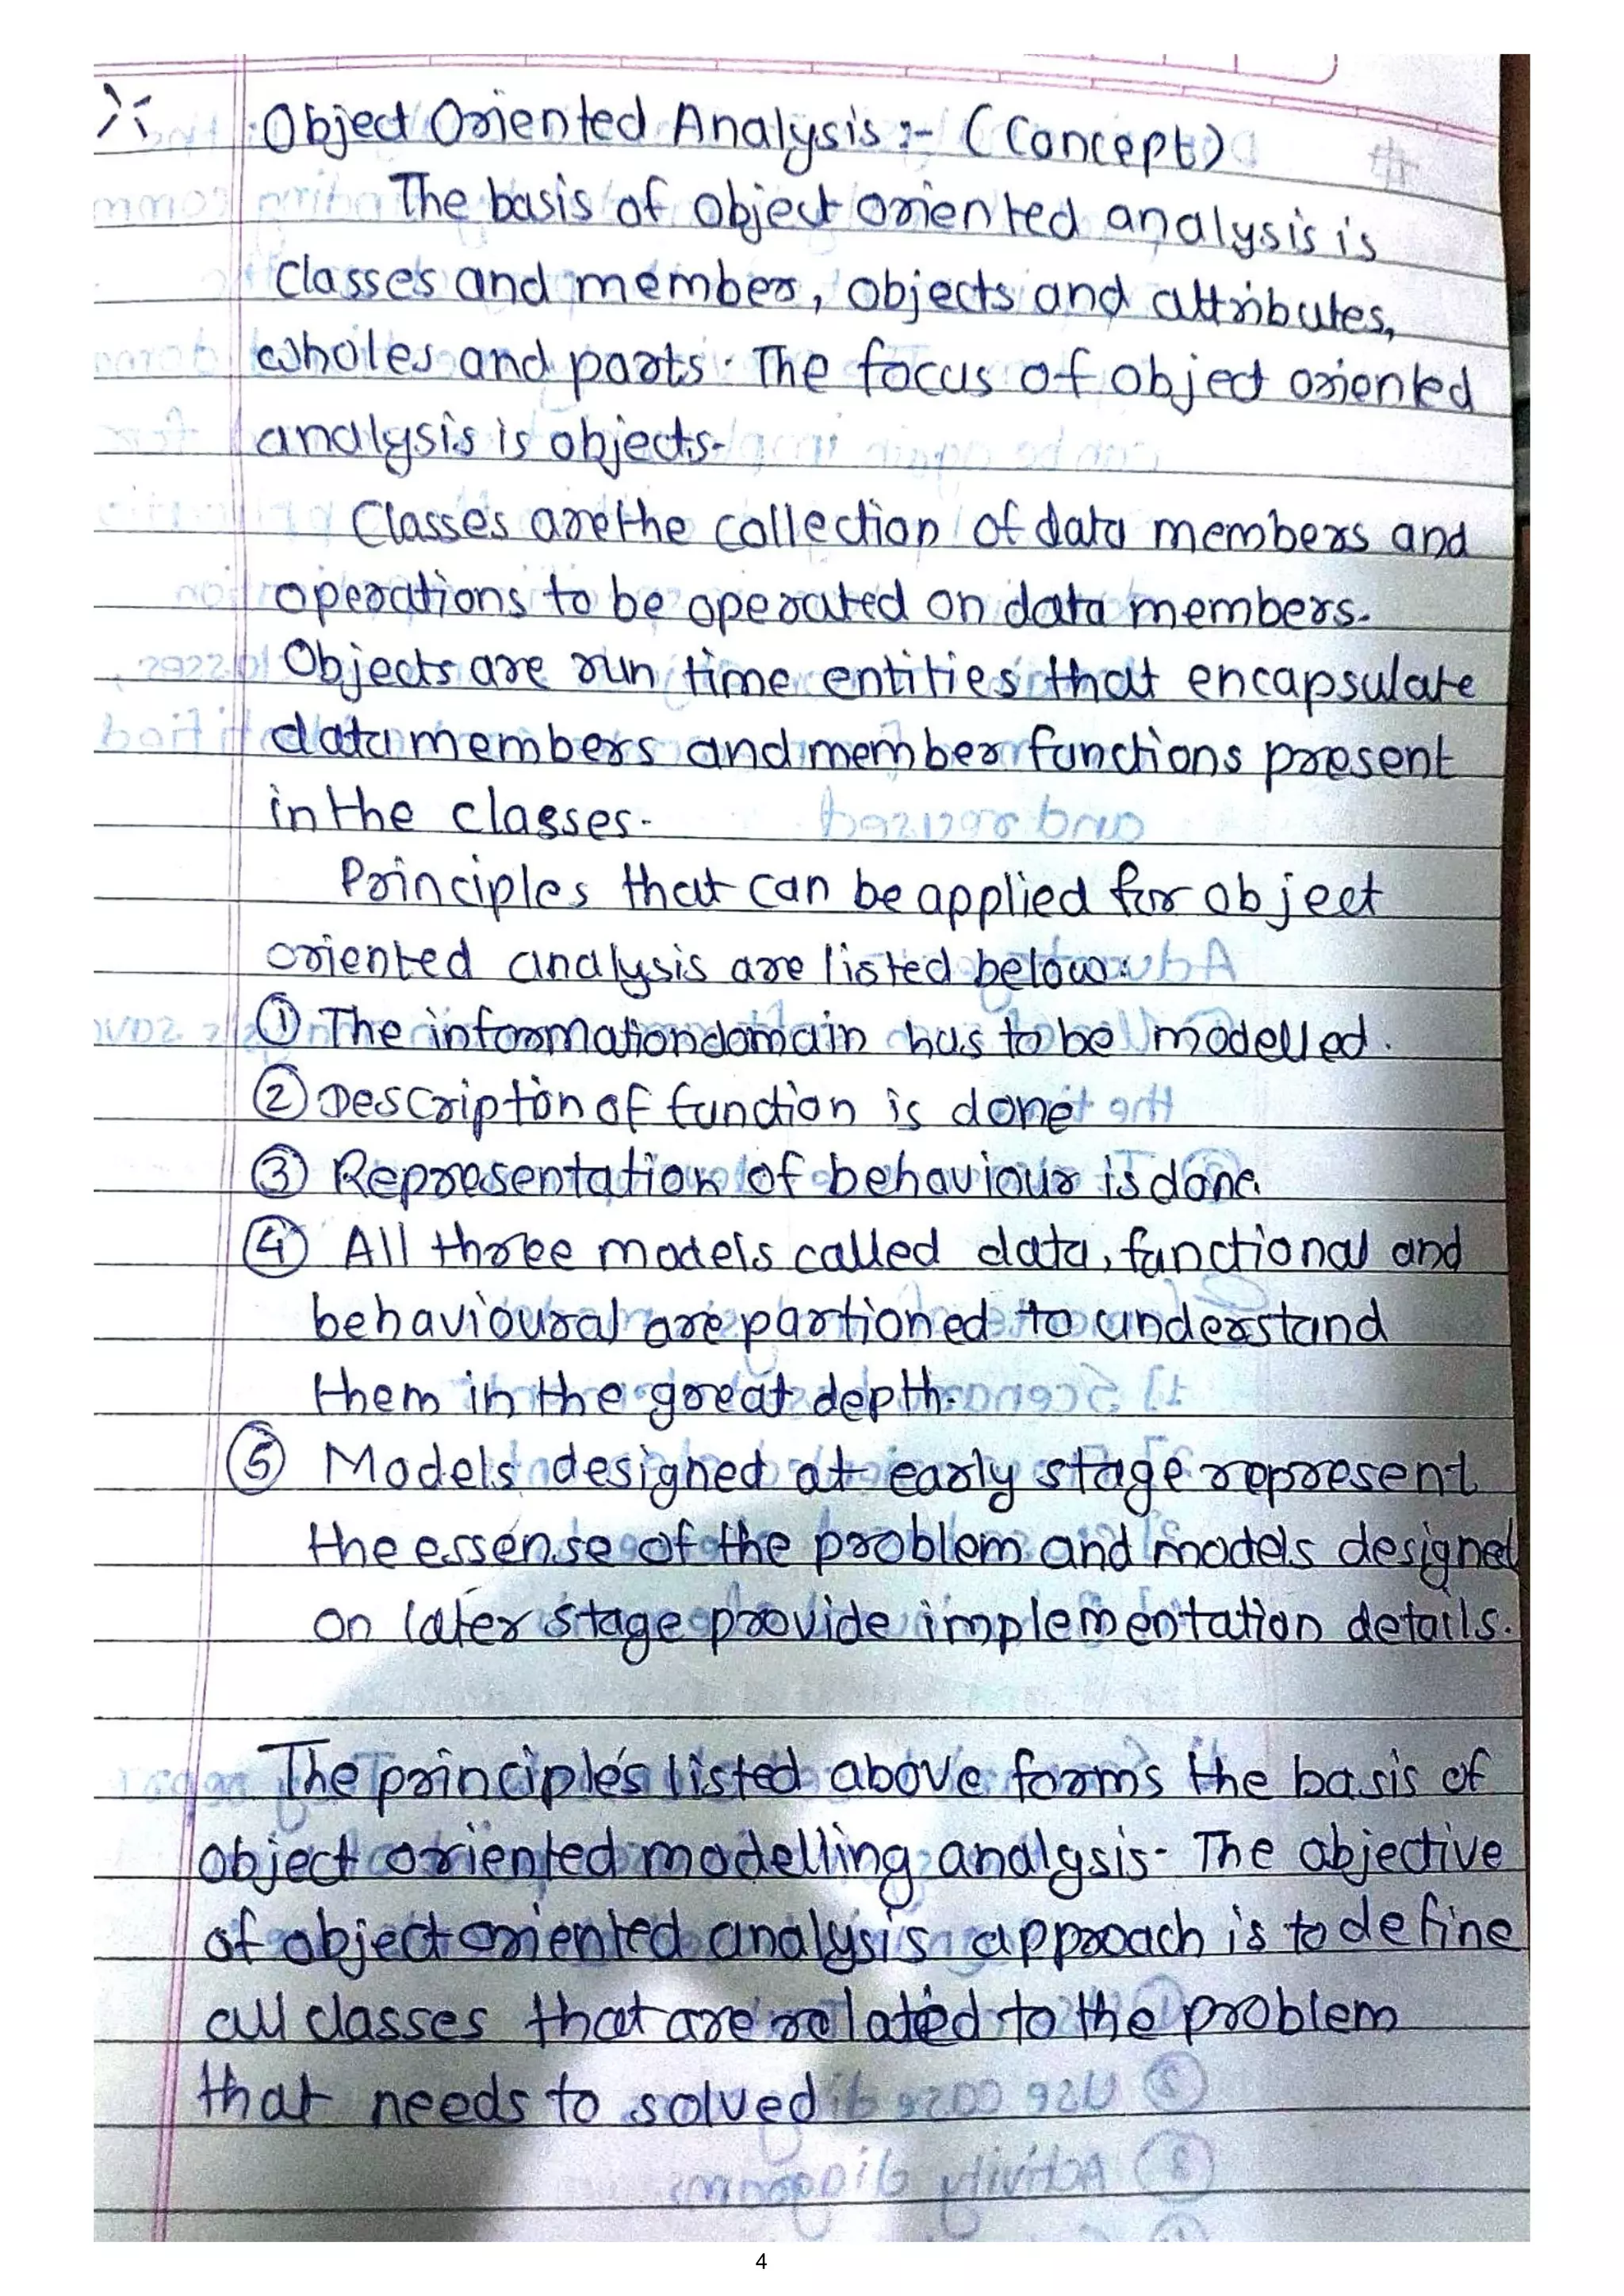 Object Oriented Analysis :- (Concept)
The basis of object oriented analysis is
classes and member, objects and attributes,
wholes and parts. The focus of object oriented
analysis is objects.
Classes are the collection of data members and
operations to be operated on data members.
Objects are run time entities that encapsulate
data members and member functions present
in the classes.
Principles that can be applied for object
oriented analysis are listed below:
① The information domain has to be modelled.
② Description of function is done
③ Representation of behaviour is done
④ All three models called data, functional and
behavioural are partioned to understand
them in the great depth.
⑤ Models designed at early stage represent
the essense of the problem and models designed
on later stage provide implementation details.
The principles listed above forms the basis of
object oriented modelling analysis. The objective
of object oriented analysis approach is to define
all classes that are related to the problem
that needs to solved
4